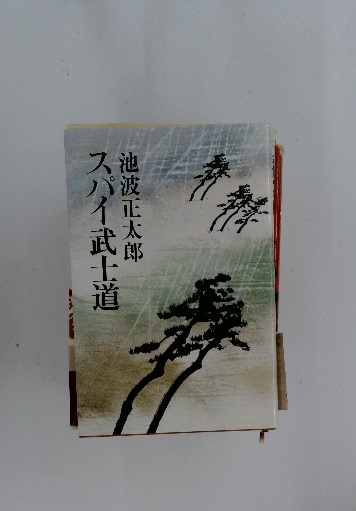 池波正太郎
スパイ武士道